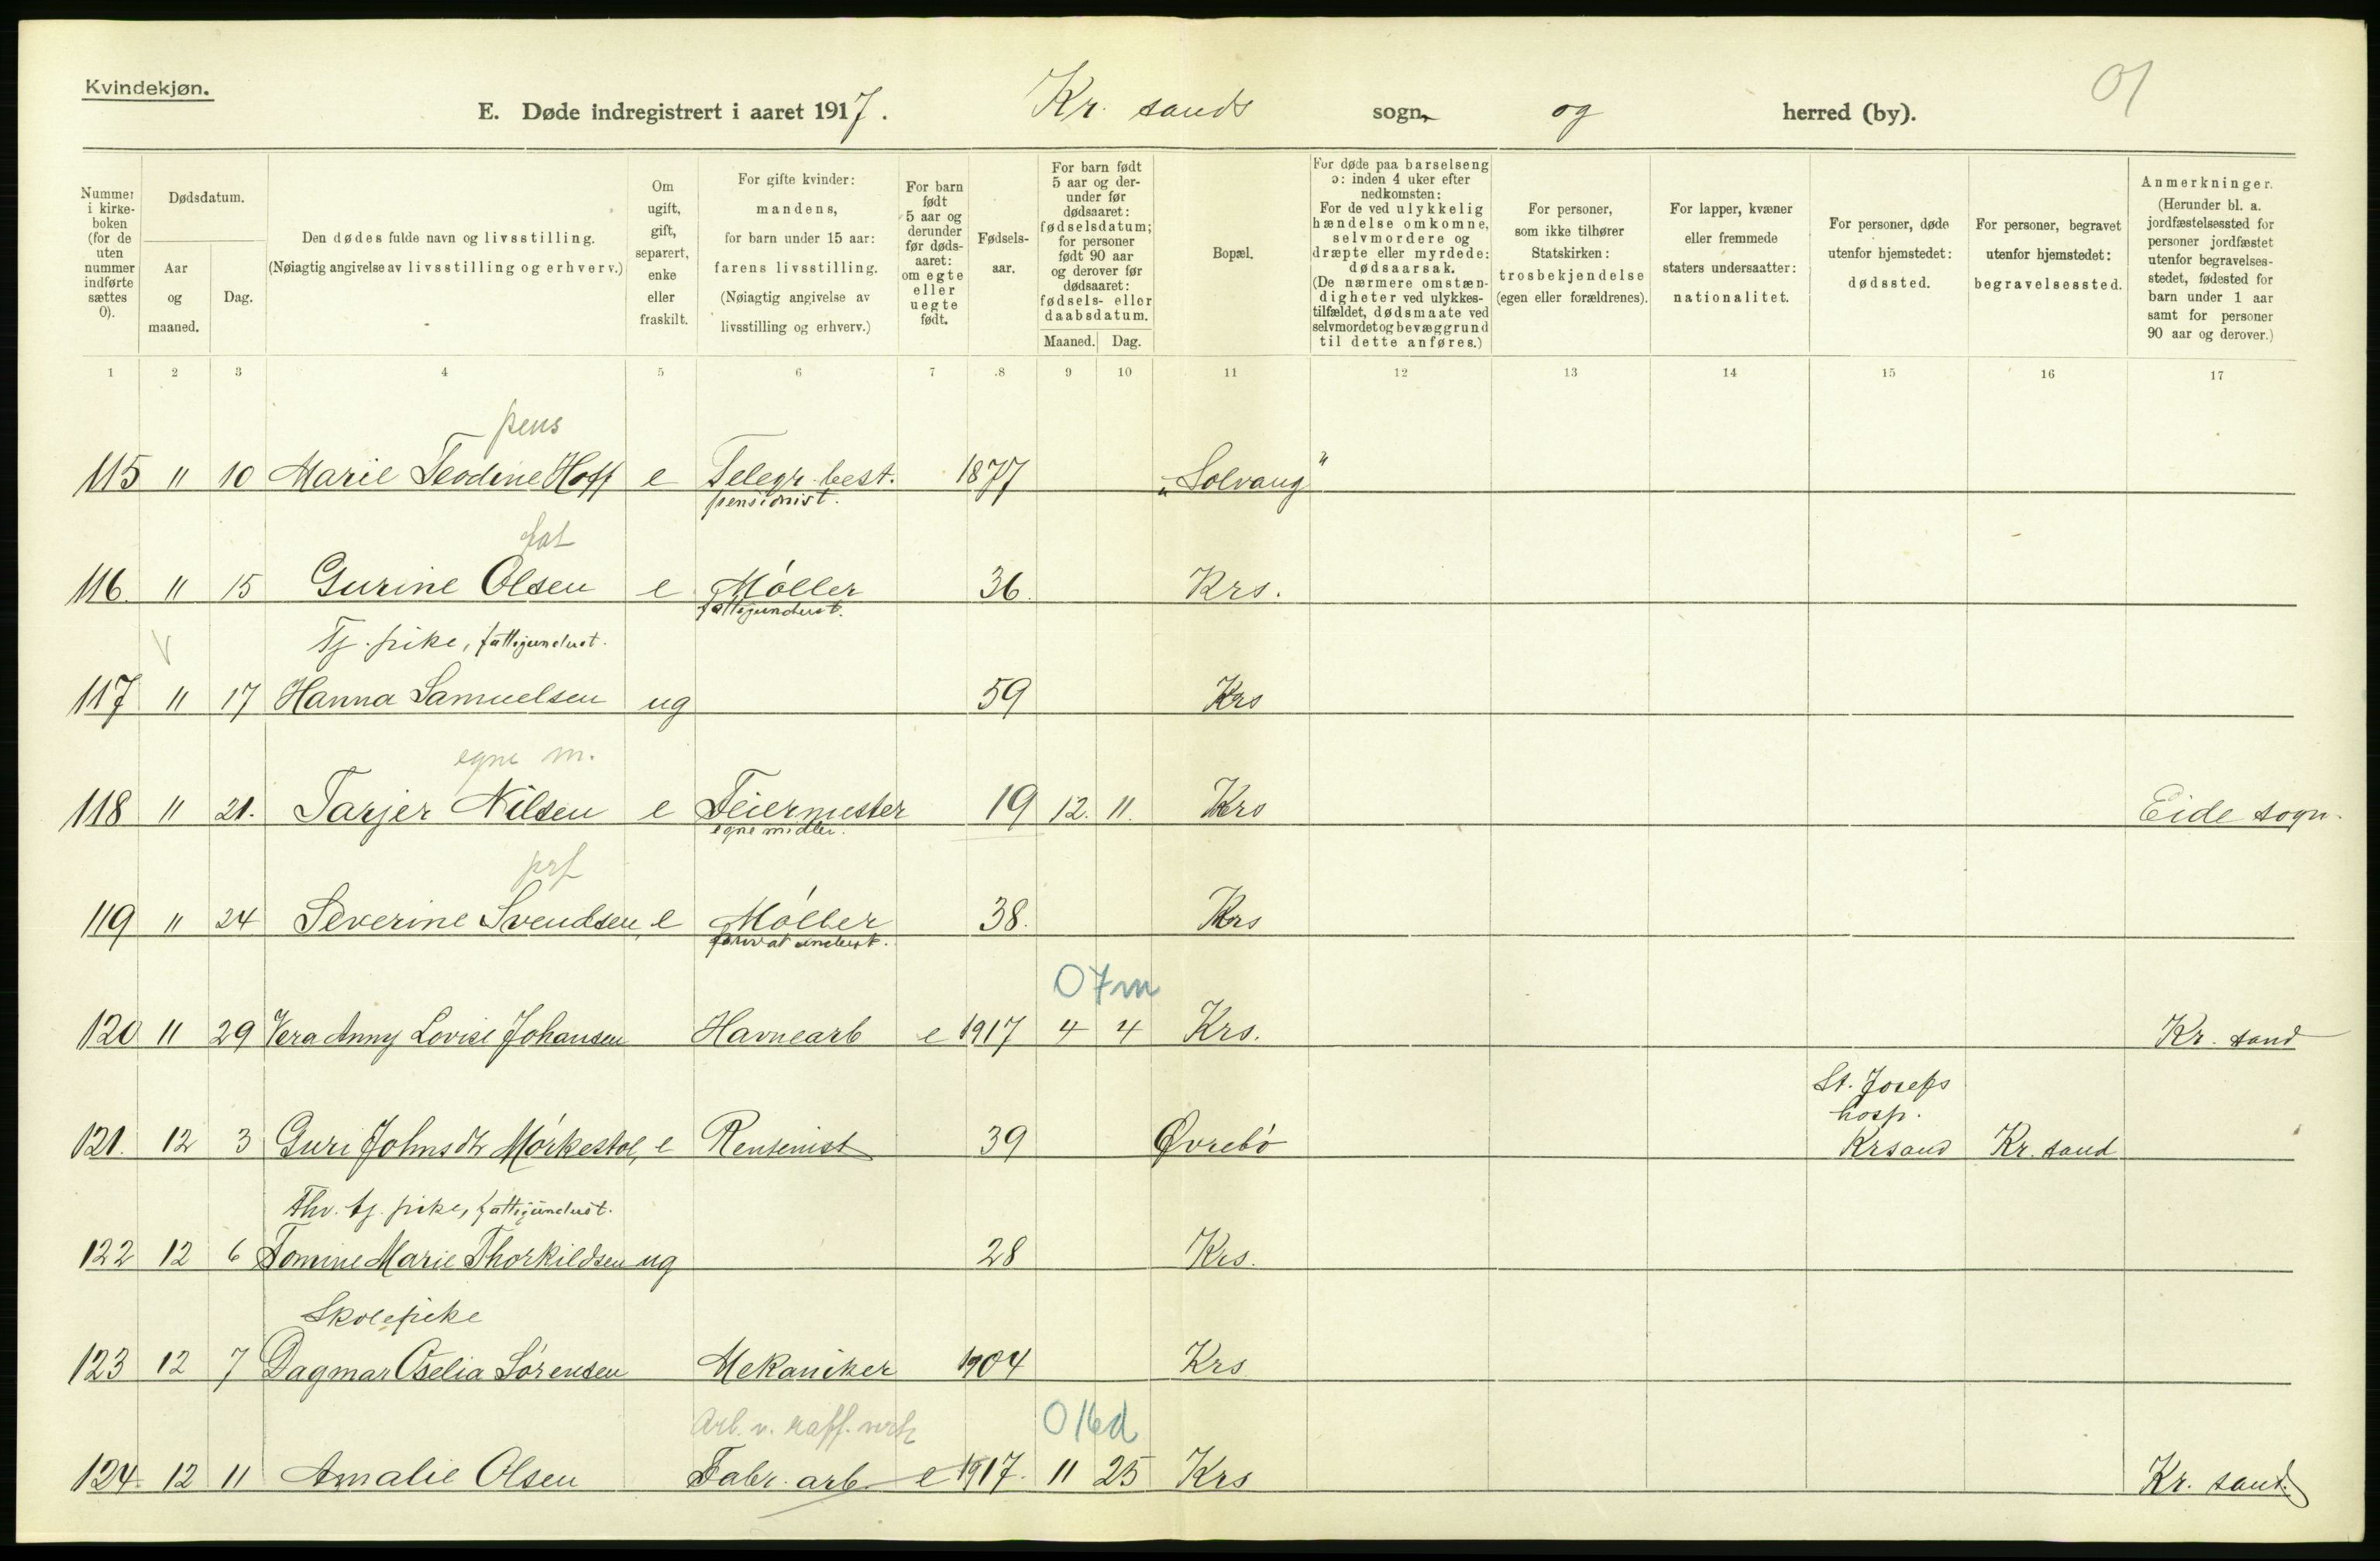 Kvindekjøn.
E. Døde indregistrert i aaret 1917. Kr. sands sogn og herred (by).
Nummer i kirkeboken (for de uten nummer indførte sættes 0).
Dødsdatum.
Aar og maaned.
Dag.
Den dødes fulde navn og livsstilling.
(Nøiagtig angivelse av livsstilling og erhverv.)
Om ugift, gift, separert, enke eller fraskilt.
For gifte kvinder: mandens, for barn under 15 aar: farens livsstilling. (Nøiagtig angivelse av livsstilling og erhverv.)
For barn født 5 aar og derunder før dødsaaret: om egte eller uegte født.
Fødselsaar.
For barn født 5 aar og derunder før dødsaaret: fødselsdatum; for personer født 90 aar og derover før dødsaaret: fødsels- eller daabsdatum.
Maaned. Dag.
Bopæl.
For døde paa barselseng ɔ: inden 4 uker efter nedkomsten: For de ved ulykkelig hændelse omkomne, selvmordere og dræpte eller myrdede: dødsaarsak. (De nærmere omstændigheter ved ulykkestilfældet, dødsmaate ved selvmordet og bevæggrund til dette anføres.)
For personer, som ikke tilhører Statskirken: trosbekjendelse (egen eller forældrenes).
For lapper, kvæner eller fremmede staters undersaatter: nationalitet.
For personer, døde utenfor hjemstedet: dødssted.
For personer, begravet utenfor hjemstedet: begravelsessted.
Anmerkninger. (Herunder bl. a. jordfæstelsessted for personer jordfæstet utenfor begravelsesstedet, fødested for barn under 1 aar samt for personer 90 aar og derover.)
1 2 3 4 5 6 7 8 9 10 11 12 13 14 15 16 17
pens
115 " 10 Marie Teodine Hoff e Telegr. best. 1877 "Solvang"
pensionist.
fat
116. " 15 Gurine Olsen e Møller 36. Krs.
fattigunderst.
Tj. pike, fattigunderst.
117 " 17 Hanna Samuelsen ug 59 Krs
egne m.
118 " 21. Tarjer Nilsen e Feiermester 19 12. 11. Krs Eide sogn.
egne midler.
prf
119 " 24 Severine Svendsen e Møller 38. Krs
privat underst.
0 7m
120 11 29 Vera Anny Lovise Johansen Havnearb e 1917 4 4 Krs. Kr. sand
St. Josefs
hosp.
121. 12 3 Guri Johnsdtr Mørkestøl, e Rentenist 39 Øvrebø Krsand Kr. sand
Fhv. tj. pike, fattigunderst.
122 12 6 Tomine Marie Thorkildsen ug 28 Krs.
Skolepike
123 12 7 Dagmar Oselia Sørensen Mekaniker 1904 Krs
Arb. v. raff. verk 0 16d
124. 12 11 Amalie Olsen Fabr. arb. e 1917. 11 25 Krs Kr. sand.